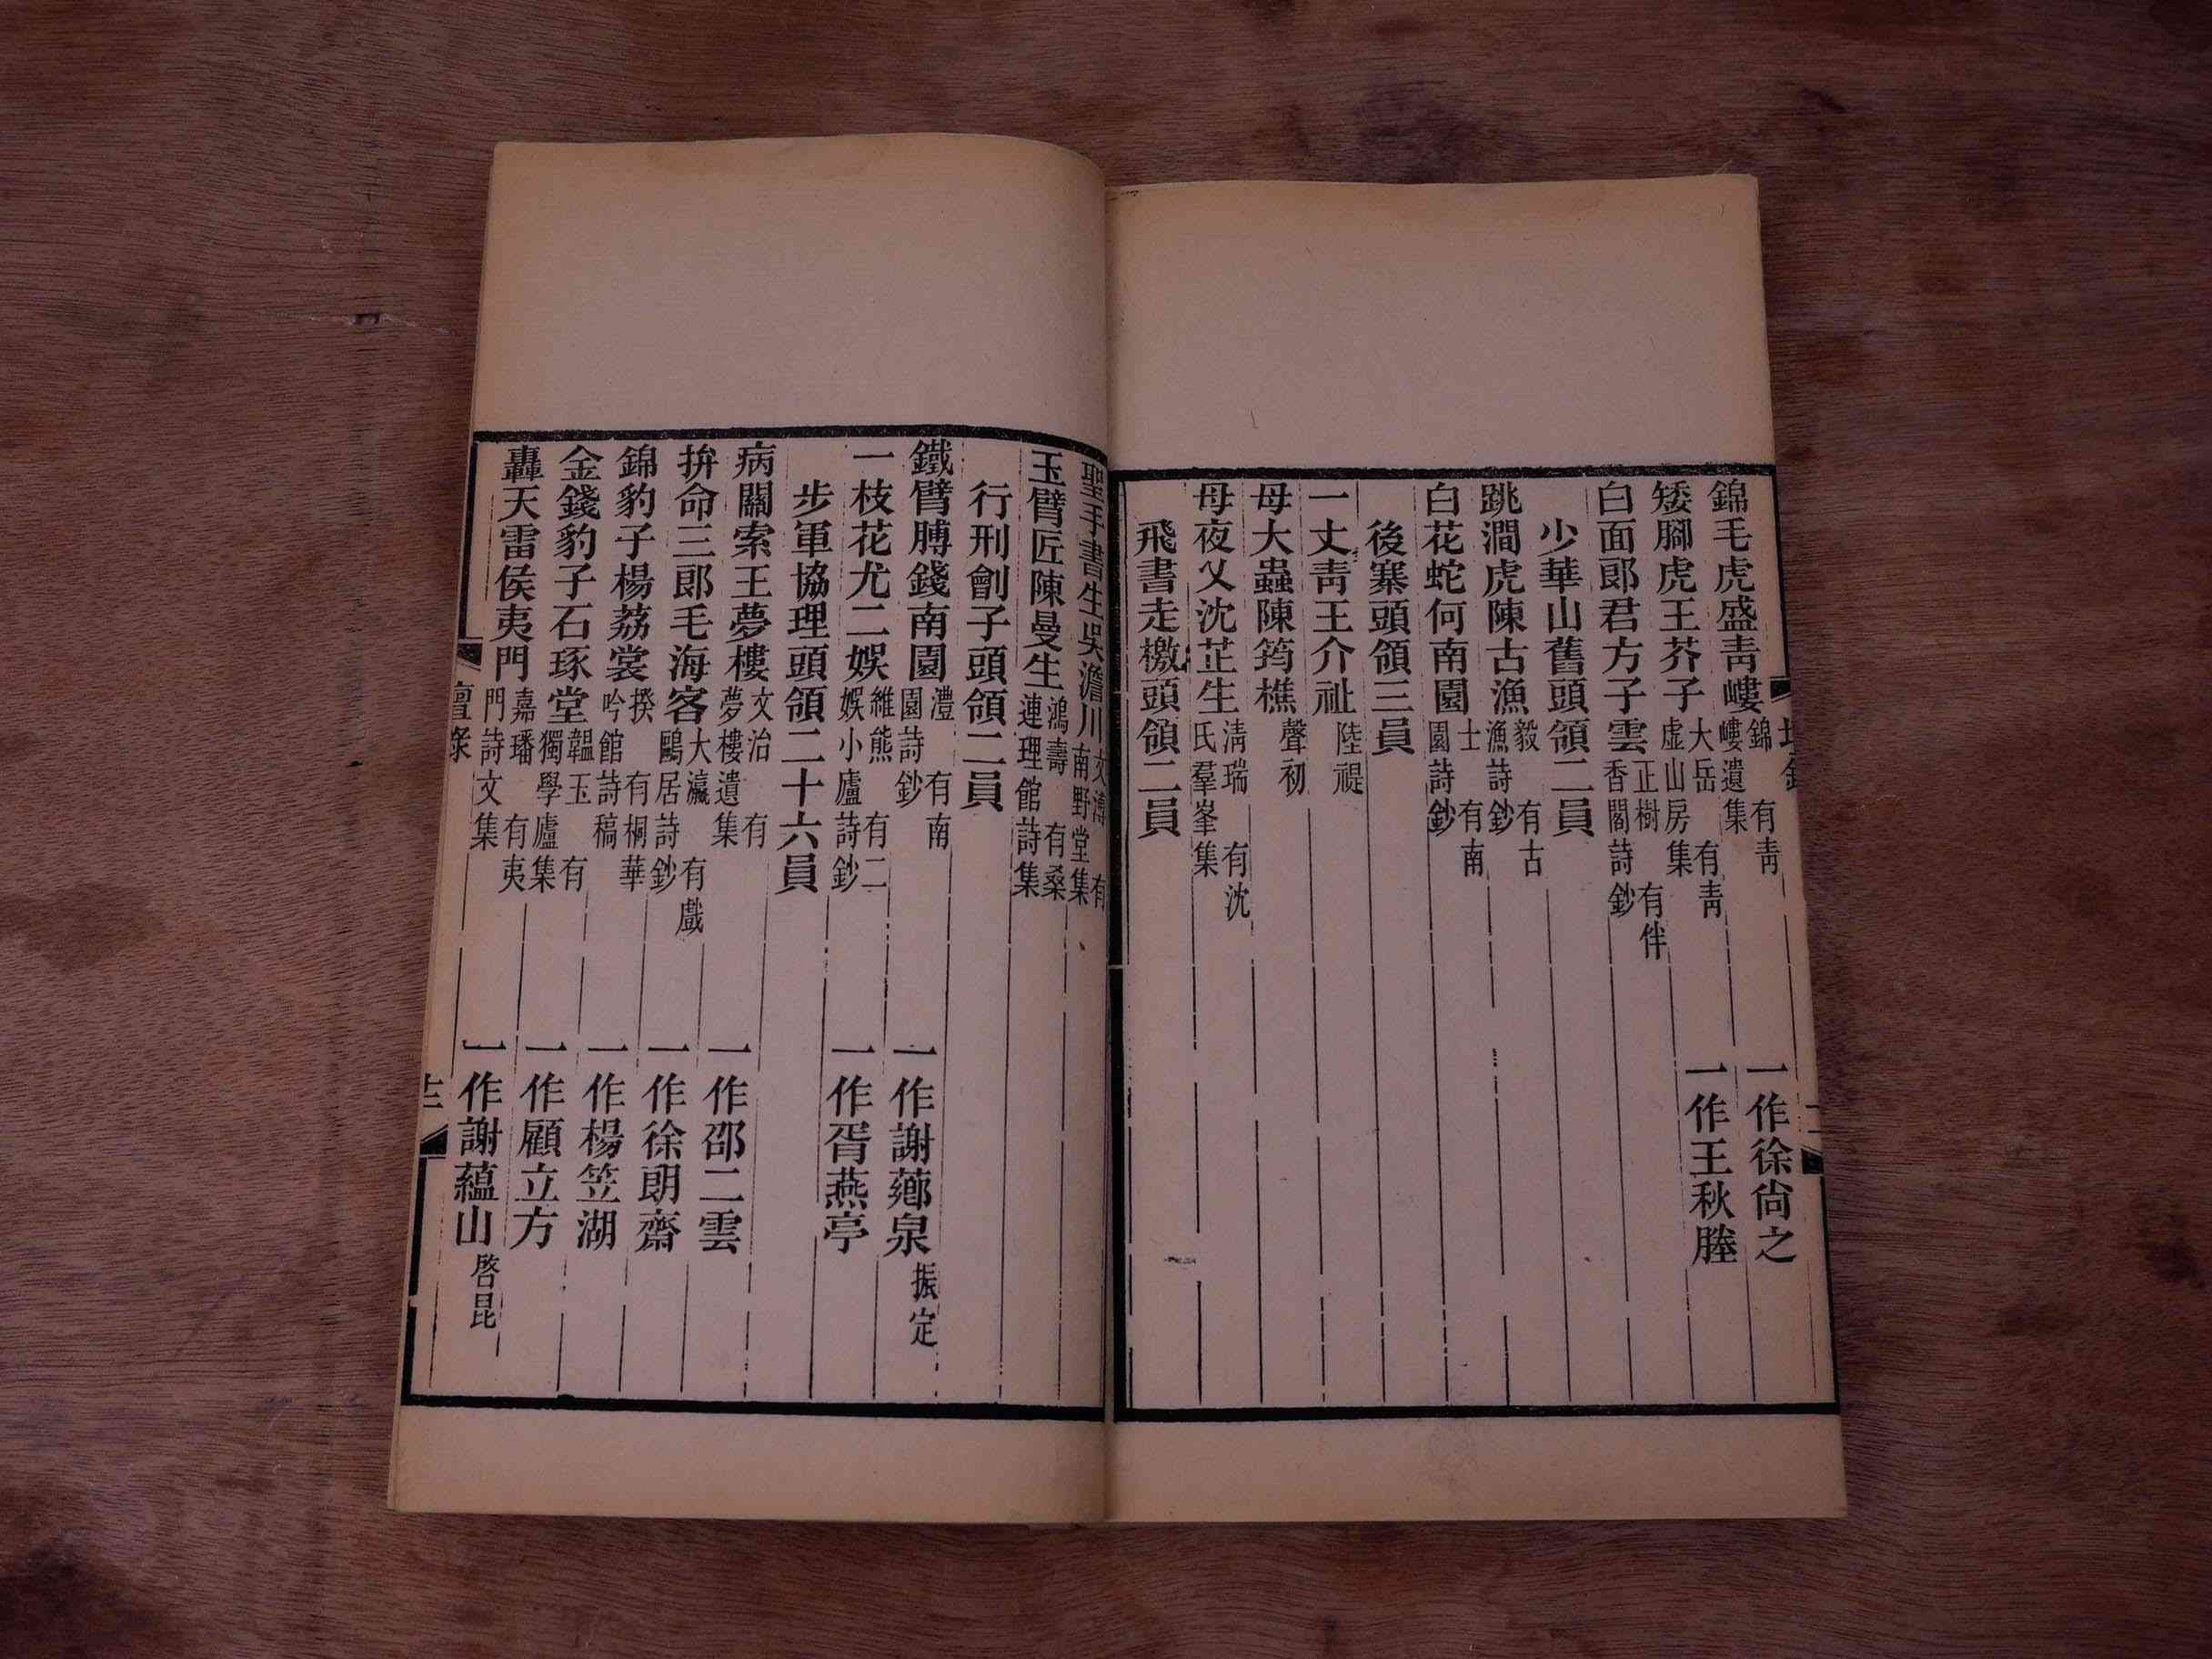 錦毛虎盛靑嶁 錦 有靑嶁遺集 一作徐尙之
矮腳虎王芥子 大岳 有靑虛山房集 一作王秋塍
白面郞君方子雲 正樹 有伴香閣詩鈔
少華山舊頭領二員
跳澗虎陳古漁 毅 有古漁詩鈔
白花蛇何南園 士 有南園詩鈔
後寨頭領三員
一丈靑王介祉 陸禔
母大蟲陳筠樵 聲初
母夜叉沈芷生 淸瑞 有沈氏羣峯集
飛書走檄頭領二員
聖手書生吳澹川 文溥 有南野堂集
玉臂匠陳曼生 鴻壽 有桑連理館詩集
行刑劊子頭領二員
鐵臂膊錢南園 灃 有南園詩鈔 一作謝薌泉 振定
一枝花尤二娛 維熊 有二娛小廬詩鈔 一作胥燕亭
步軍協理頭領二十六員
病關索王夢樓 文治 有夢樓遺集 一作邵二雲
拚命三郞毛海客 大瀛 有戲鷗居詩鈔 一作徐朗齋
錦豹子楊荔裳 揆 有桐華吟館詩稿 一作楊笠湖
金錢豹子石琢堂 韞玉 有獨學廬集 一作顧立方
轟天雷侯夷門 嘉璠 有夷門詩文集 一作謝蘊山 啓昆